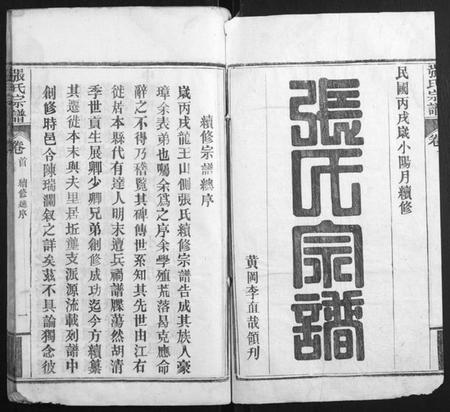 張氏宗譜
卷
民國丙戌歲小陽月續修
張氏宗譜
黃岡李直哉領刊
續修宗譜總序
歲丙戌龍王山側張氏續修宗譜告成其族人豪
璋余表弟也屬余為之序余學殖荒落曷克應命
辭之不得乃稽覽其碑傳世系知其先世由江右
徙居本縣代有達人明末遭兵禍譜牒蕩然胡清
季世貢生展卿少卿兄弟創修成功迄今方續纂
其遷徙本末與夫里居坵壟支派源流載列譜中
創修時邑令陳瑞瀾叙之詳矣茲不具論獨念彼
張氏宗譜
卷首
續修總序
一